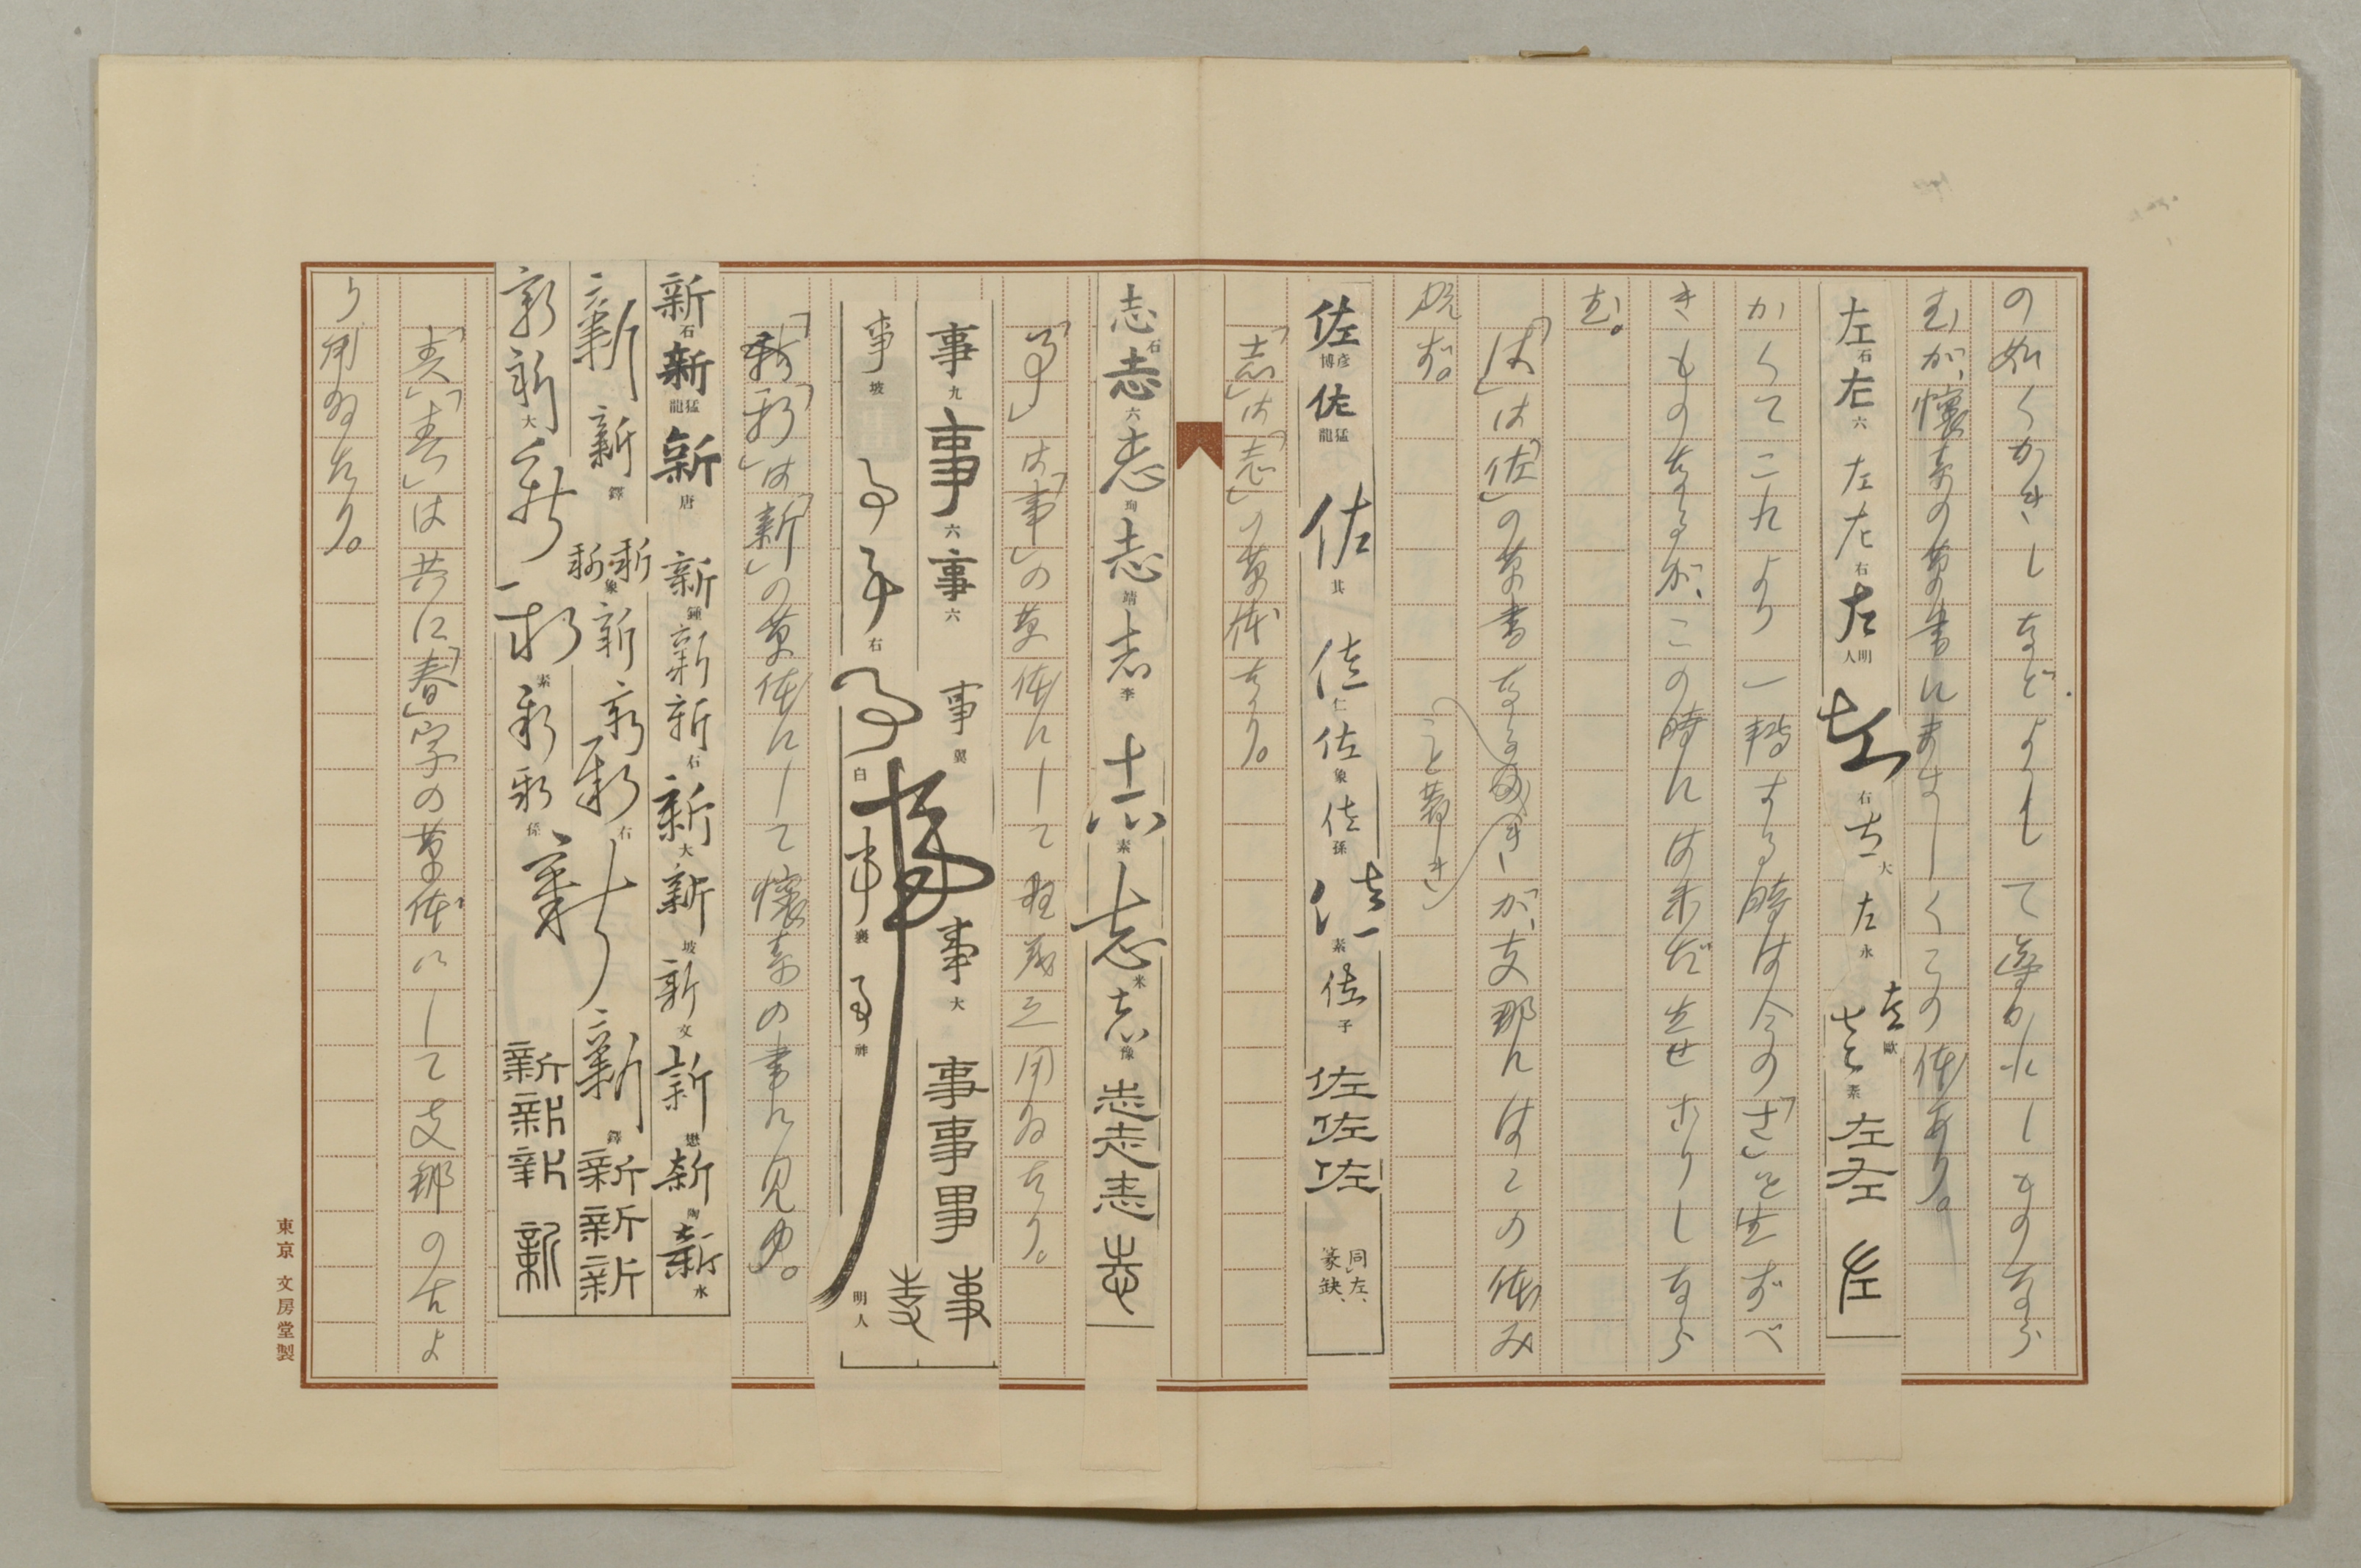 の如くかきしなどよりして導かれしものなら
むが、懐素の草書にまさしくこの体あり。
左 石 左 六 左 左 右 左 明人 左 右 左 大 左 永 左 歐 左 素 左 左 左
かくてこれより一轉する時は今の「さ」を生ずべ
きものなるが、この時には未だ生せざりしなら
む。
は「佐」の草書なるべきが、支那にはこの体み
えず。
佐 彦博 佐 龍猛 佐 其 佐 仁 佐 象 佐 孫 佐 素 佐 子 佐 佐 佐 同左、篆缺、
「志」は「志」の草体なり。
志 石 志 六 志 珣 志 靖 志 李 志 素 志 米 志 豫 志 志 志 志
「事」は「事」の草体にして
用ゐたり。
事 九 事 六 事 六 事 翼 事 大 事 事 事 事
事 坡 事 事 右 事 白 事 襄 事 祥 事 明人 事
は「新」の草体にして懐素の書に見ゆ。
新 石 新 龍猛 新 唐 新 鍾 新 新 石 新 大 新 坡 新 文 新 懋 新 陶 新 水
新 新 鐸 新 新 象 新 新 新 右 新 新 鐸 新 新 新
新 新 大 新 新 素 新 新 孫 新 新 新 新 新
は共に「春」字の草体にして支那の古よ
り用ゐたり。
東京 文房堂製